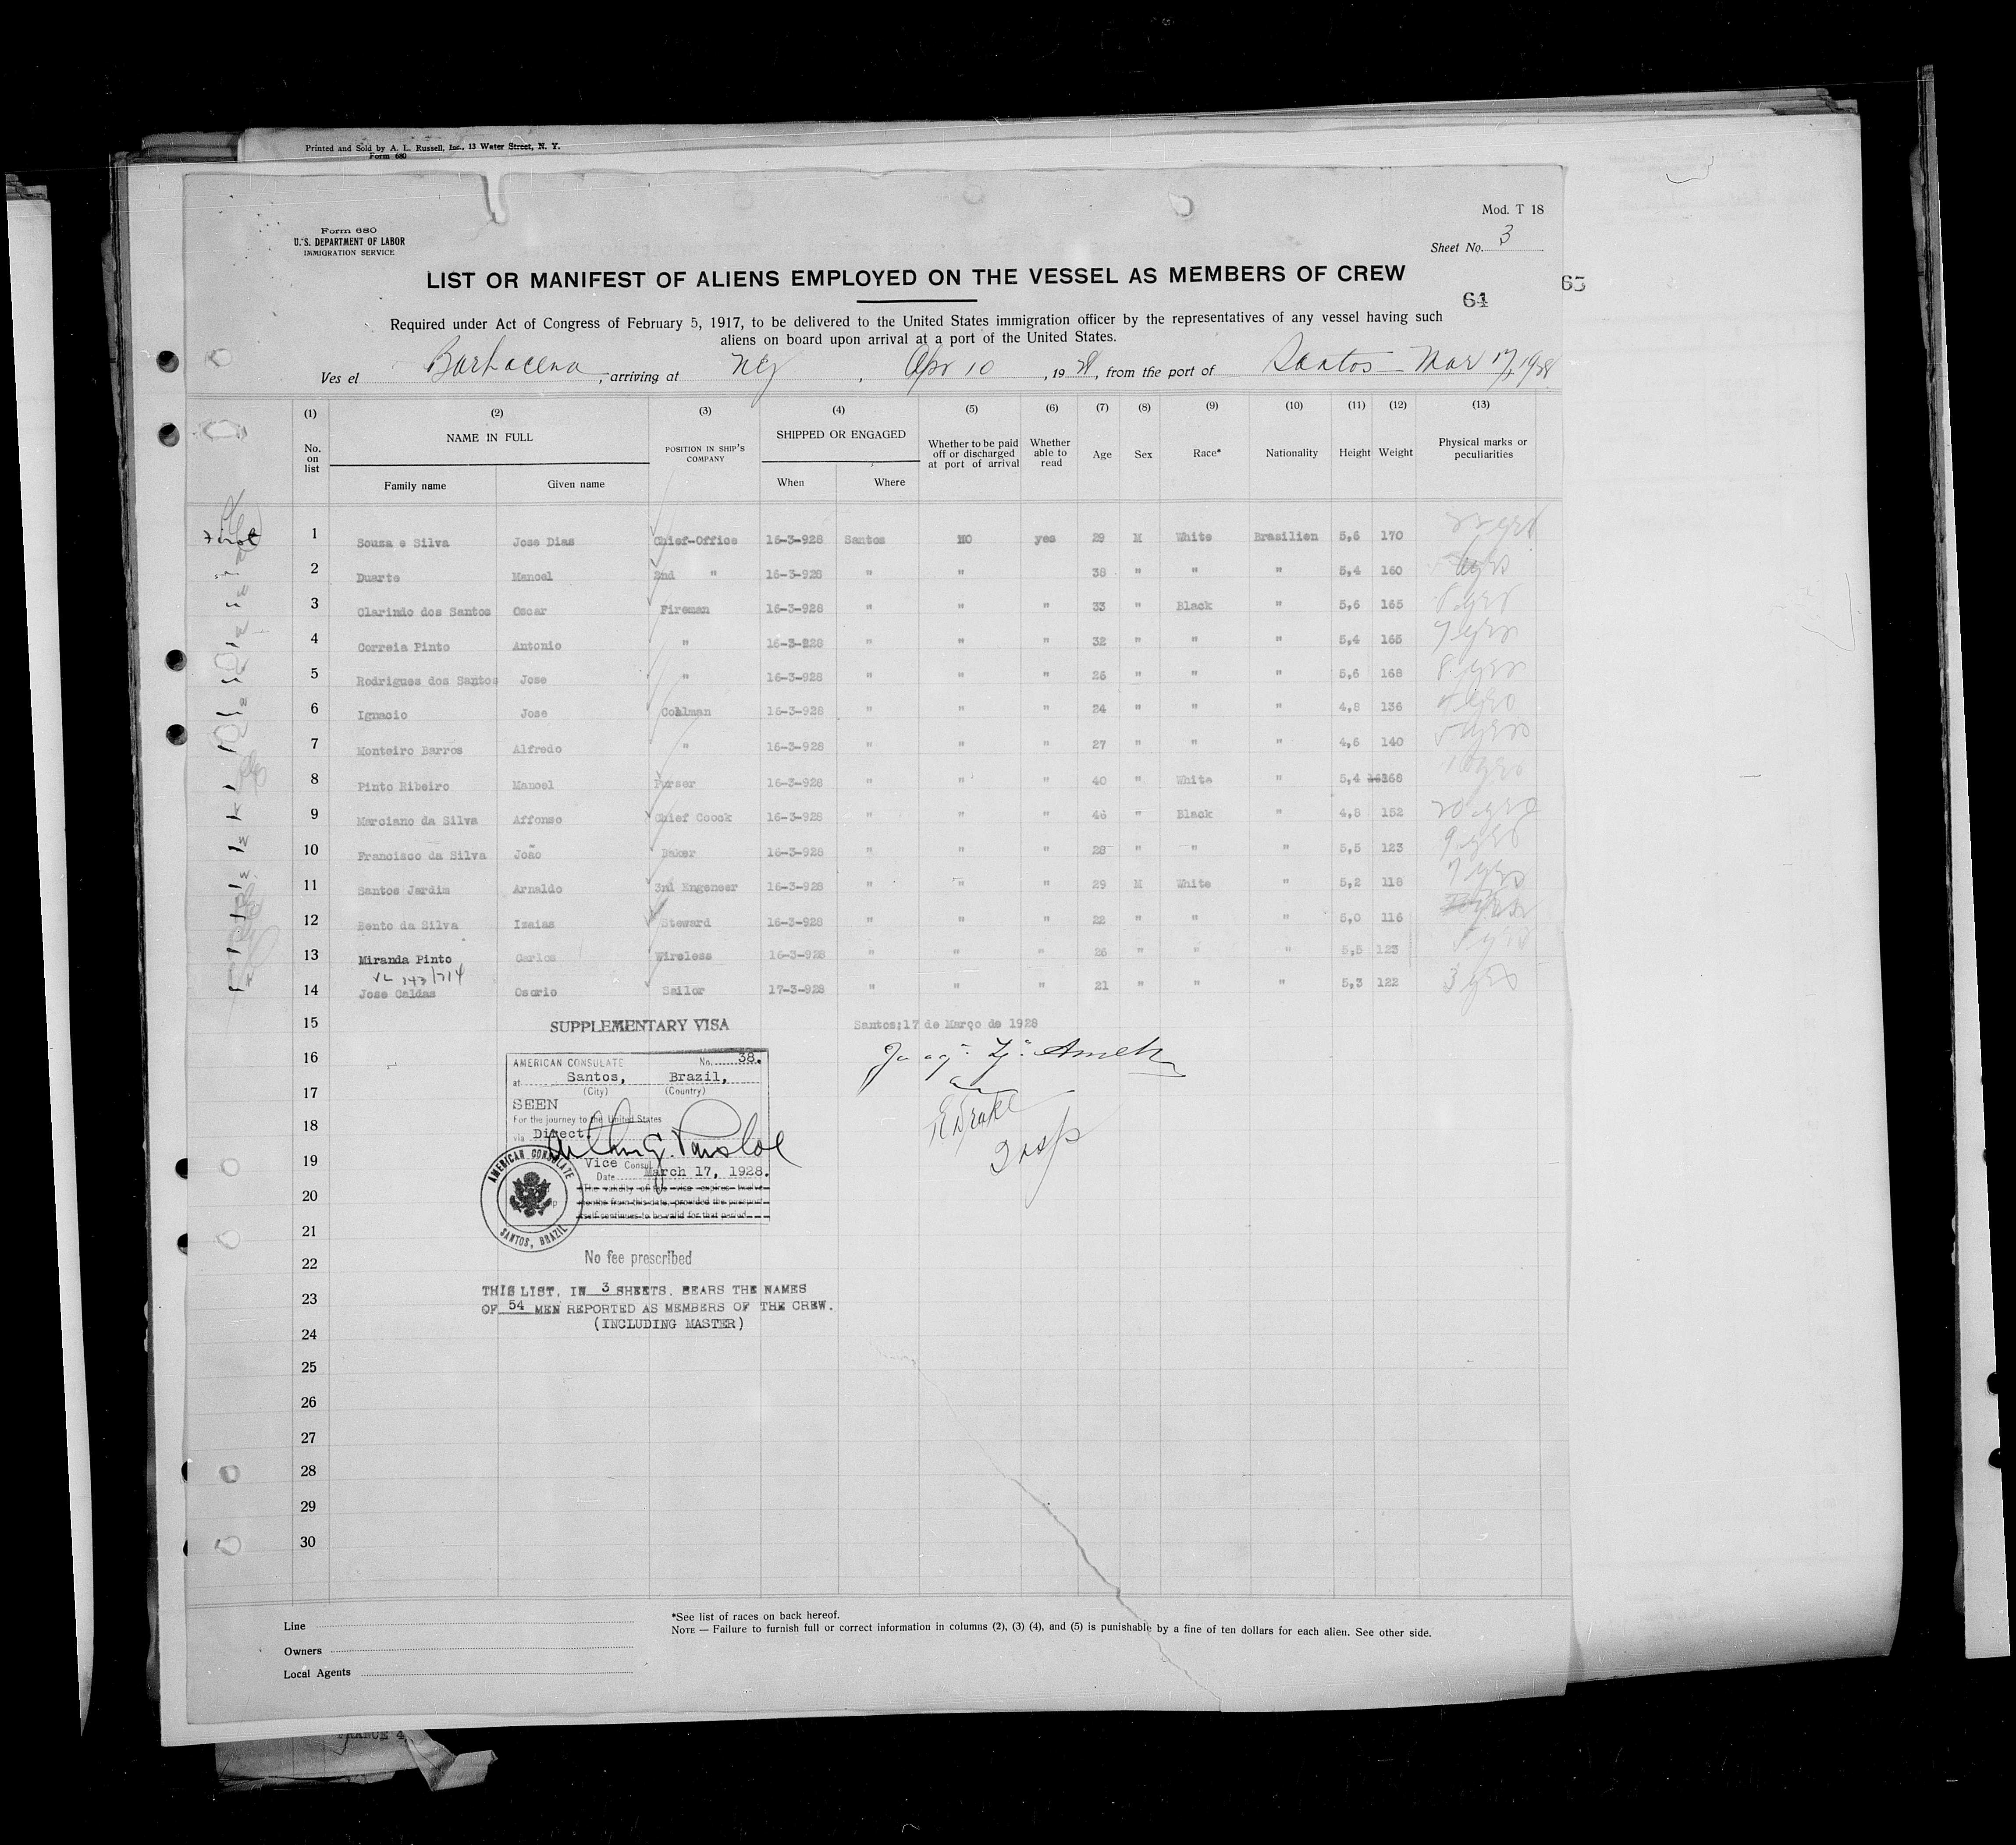 Printed and Sold by A. L. Russell, Inc., 13 Water Street, N. Y.
Form 680
Mod. T 18
Form 680
U. S. DEPARTMENT OF LABOR
IMMIGRATION SERVICE
Sheet No. 3
LIST OR MANIFEST OF ALIENS EMPLOYED ON THE VESSEL AS MEMBERS OF CREW
64
65
Required under Act of Congress of February 5, 1917, to be delivered to the United States immigration officer by the representatives of any vessel having such
aliens on board upon arrival at a port of the United States.
Ves el Barbacena, arriving at NY, Apr 10, 1928, from the port of Santos — Mar 17, 1928
(1) (2) (3) (4) (5) (6) (7) (8) (9) (10) (11) (12) (13)
No. on list NAME IN FULL POSITION IN SHIP'S COMPANY SHIPPED OR ENGAGED Whether to be paid off or discharged at port of arrival Whether able to read Age Sex Race* Nationality Height Weight Physical marks or peculiarities
Family name Given name When Where
1 Souza e Silva Jose Dias Chief-Office 16-3-928 Santos NO yes 29 M White Brasilien 5,6 170
2 Duarte Manoel 2nd " 16-3-928 " " 38 " " " 5,4 160
3 Clarindo dos Santos Oscar Fireman 16-3-928 " " " 33 " Black " 5,6 165
4 Correia Pinto Antonio " 16-3-928 " " " 32 " " " 5,4 165 7 yrs
5 Rodrigues dos Santos Jose " 16-3-928 " " " 26 " " " 5,6 168 8 yrs
6 Ignacio Jose Coalman 16-3-928 " " " 24 " " " 4,8 136
7 Monteiro Barros Alfredo " 16-3-928 " " " 27 " " " 4,6 140
8 Pinto Ribeiro Manoel Purser 16-3-928 " " " 40 " White " 5,4 168
9 Marciano da Silva Affonso Chief Coock 16-3-928 " " " 46 " Black " 4,8 152 20 yrs
10 Francisco da Silva João Baker 16-3-928 " " " 28 " " " 5,5 123 9 yrs
11 Santos Jardim Arnaldo 3nd Engeneer 16-3-928 " " " 29 M White " 5,2 118 7 yrs
12 Bento da Silva Izaias Steward 16-3-928 " " " 22 " " " 5,0 116
13 Miranda Pinto Carlos Wireless 16-3-928 " " " 26 " " " 5,5 123
14 Jose Caldas Osorio Sailor 17-3-928 " " " 21 " " " 5,3 122 3 yrs
15 SUPPLEMENTARY VISA Santos;17 de Março de 1928
16
17
18
19
20
21
22
23
24
25
26
27
28
29
30
AMERICAN CONSULATE No. 38.
at Santos, Brazil,
(City) (Country)
SEEN
For the journey to the United States
via Direct.
Vice Consul
Date March 17, 1928.
The validity of this visa expires twelve
months from this date, provided the passport
itself continues to be valid for that period
AMERICAN CONSULATE
SANTOS, BRAZIL
No fee prescribed
THIS LIST, IN 3 SHEETS, BEARS THE NAMES
OF 54 MEN REPORTED AS MEMBERS OF THE CREW.
(INCLUDING MASTER)
Line
Owners
Local Agents
*See list of races on back hereof.
NOTE — Failure to furnish full or correct information in columns (2), (3) (4), and (5) is punishable by a fine of ten dollars for each alien. See other side.
FRANCE 4